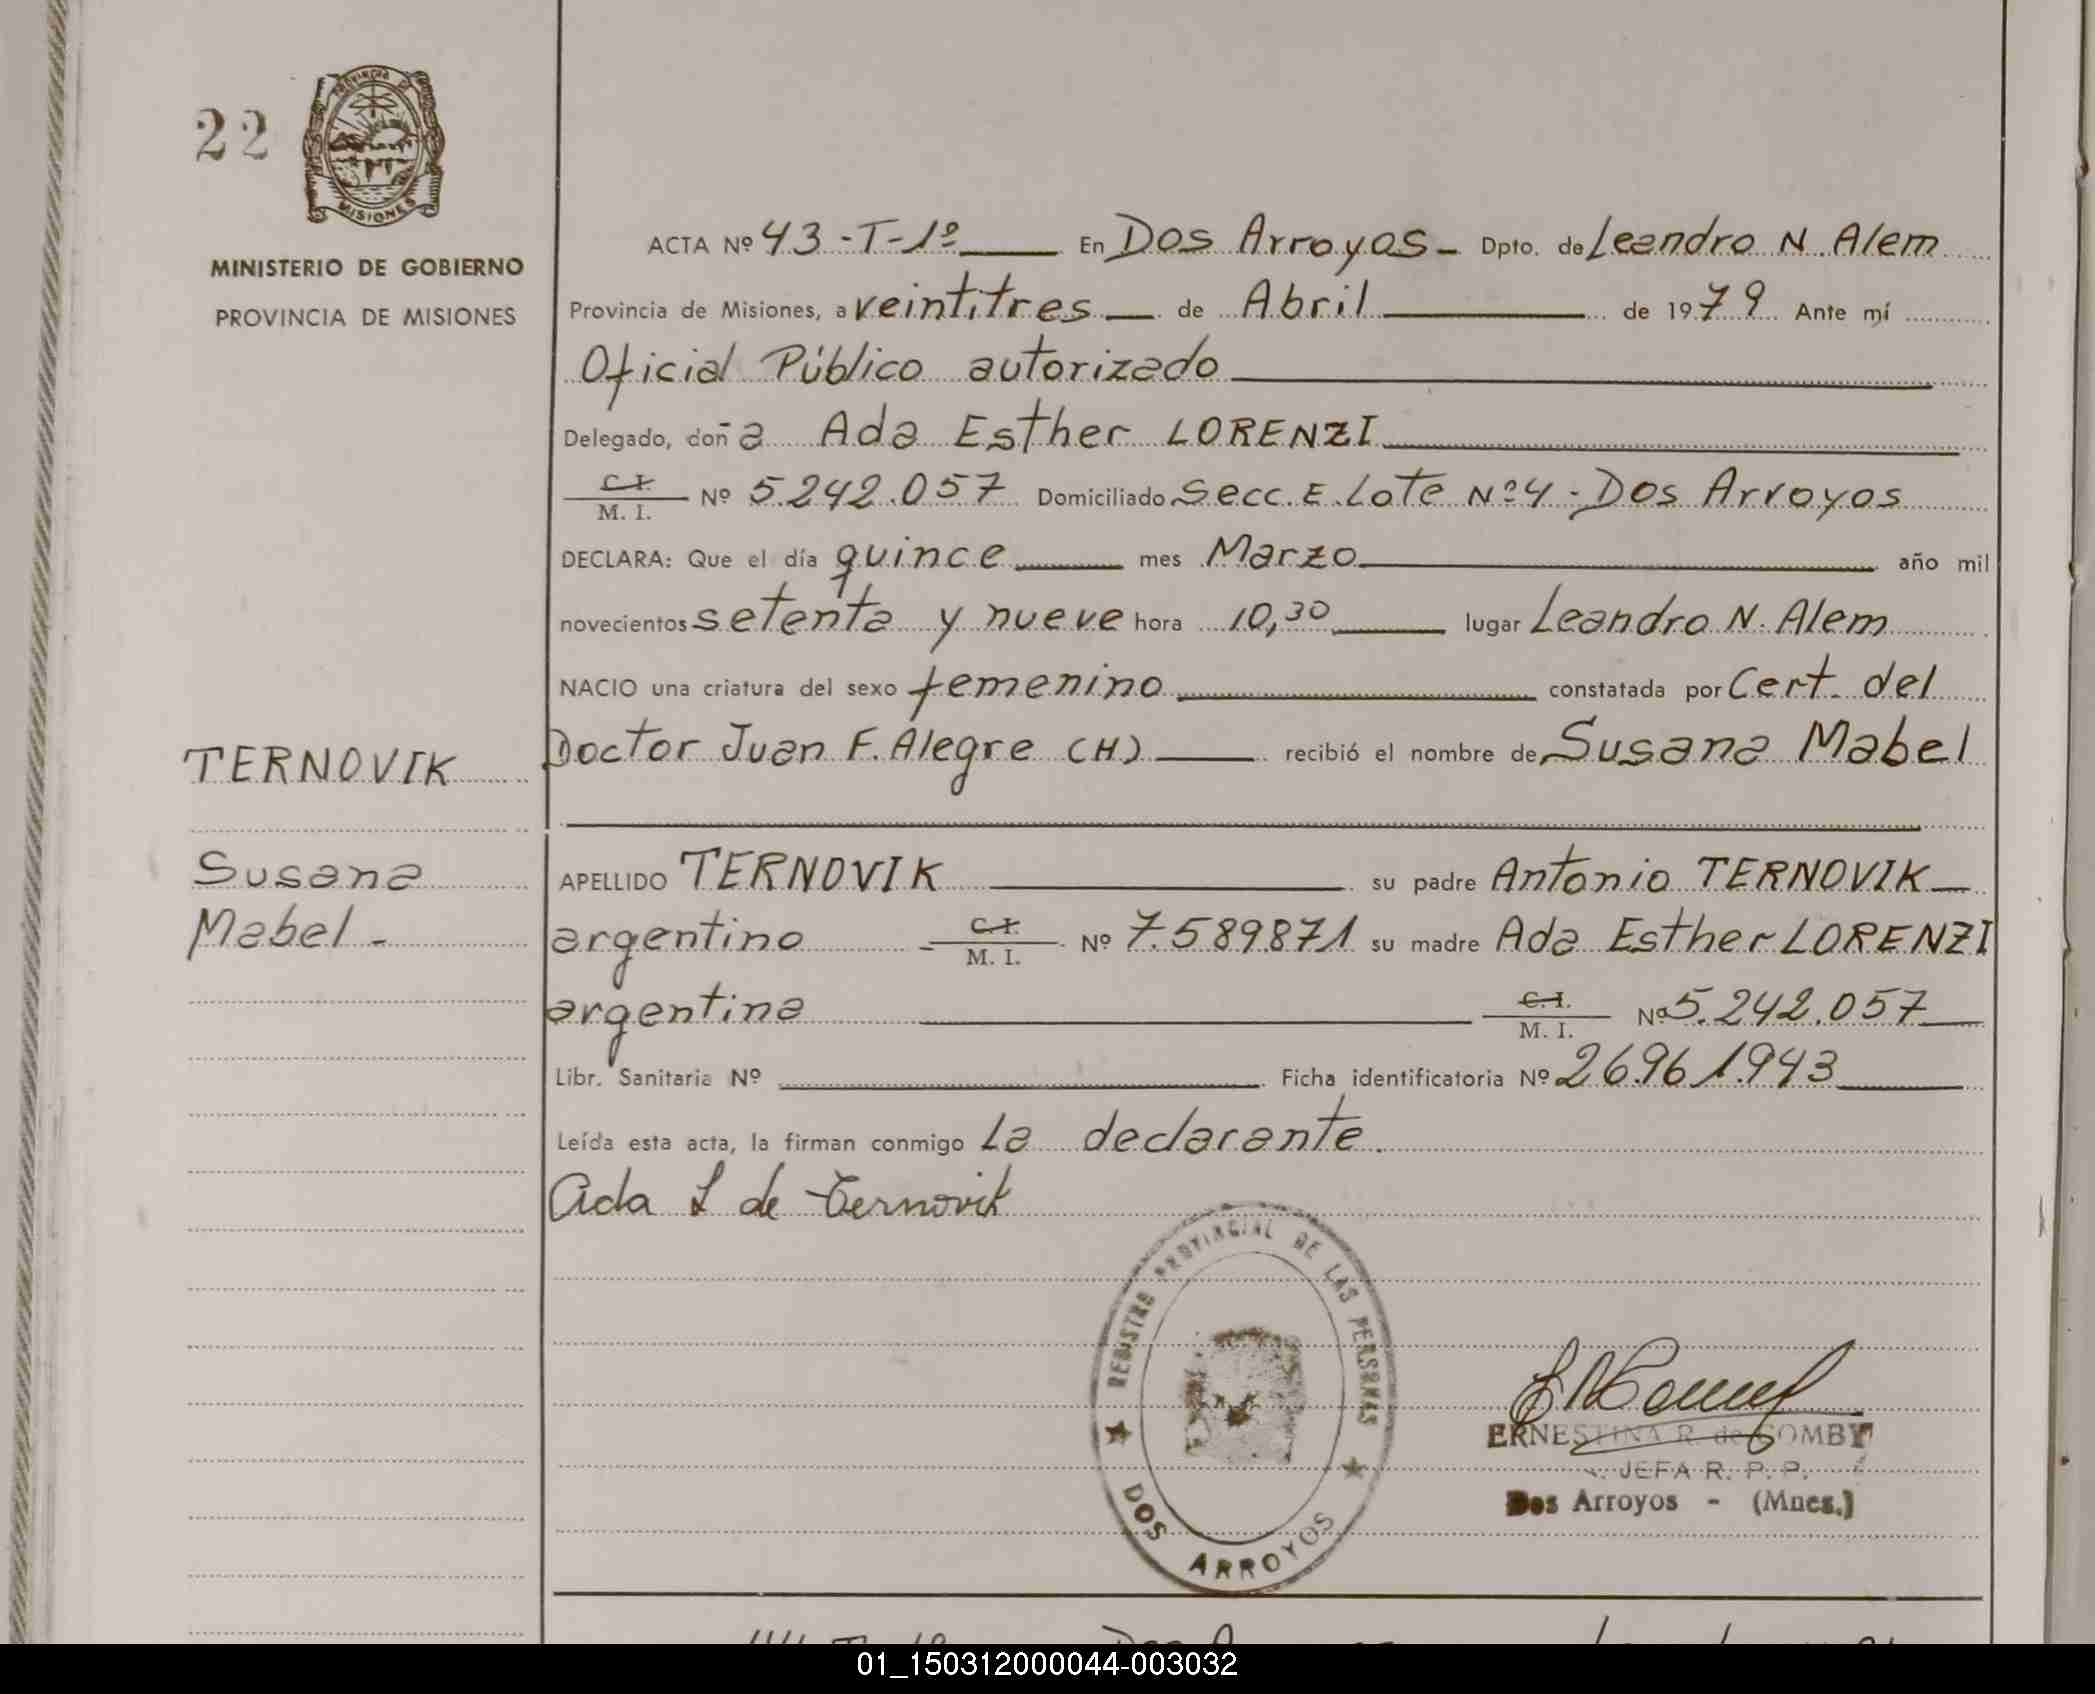 22
PROVINCIA DE
MISIONES
MINISTERIO DE GOBIERNO
PROVINCIA DE MISIONES
ACTA Nº 43 -T-1º En Dos Arroyos - Dpto. de Leandro N. Alem
Provincia de Misiones, a veintitres de Abril de 1979 Ante mí
Oficial Público autorizado
Delegado, doña Ada Esther LORENZI
C.I. / M. I. Nº 5.242.057 Domiciliado Secc. E. Lote Nº 4 - Dos Arroyos
DECLARA: Que el día quince mes Marzo año mil
novecientos setenta y nueve hora 10,30 lugar Leandro N. Alem
NACIO una criatura del sexo femenino constatada por Cert. del
Doctor Juan F. Alegre (H) recibió el nombre de Susana Mabel
TERNOVIK
Susana
Mabel -
APELLIDO TERNOVIK su padre Antonio TERNOVIK
argentino - C.I. / M. I. Nº 7.589871 su madre Ada Esther LORENZI
argentina C.I. / M. I. Nº 5.242.057
Libr. Sanitaria Nº Ficha identificatoria Nº 26.961.943
Leída esta acta, la firman conmigo la declarante.
Ada L de Ternovik
REGISTRO PROVINCIAL DE LAS PERSONAS
DOS ARROYOS
ERNESTINA R. de GOMBY
JEFA R. P. P.
Dos Arroyos - (Mnes.)
01_150312000044-003032